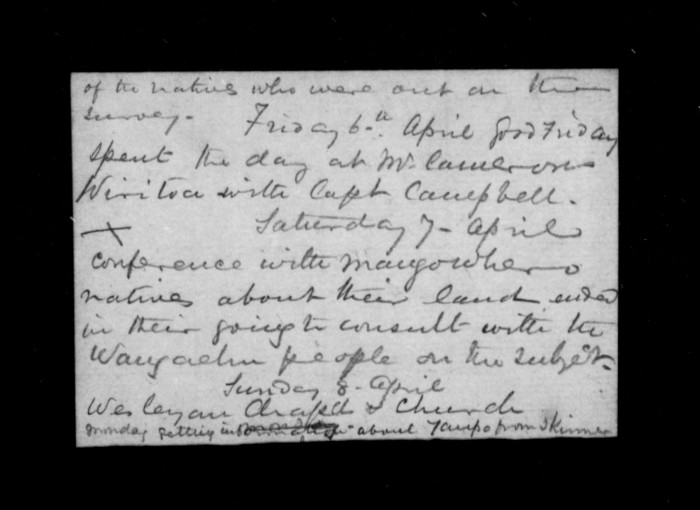 of the natives who were out on the
survey - Friday 6th. April Good Friday
spent the day at Mr. Camerons
Wiritoa with Capt Campbell.
x Saturday 7 - April
conference with Mangowhero
natives about their land ended
in their going to consult with the
Wangaehu people on the subject.
Sunday 8 - April
Wesleyan Chapel & Church
Monday getting information about Taupo from Skinner